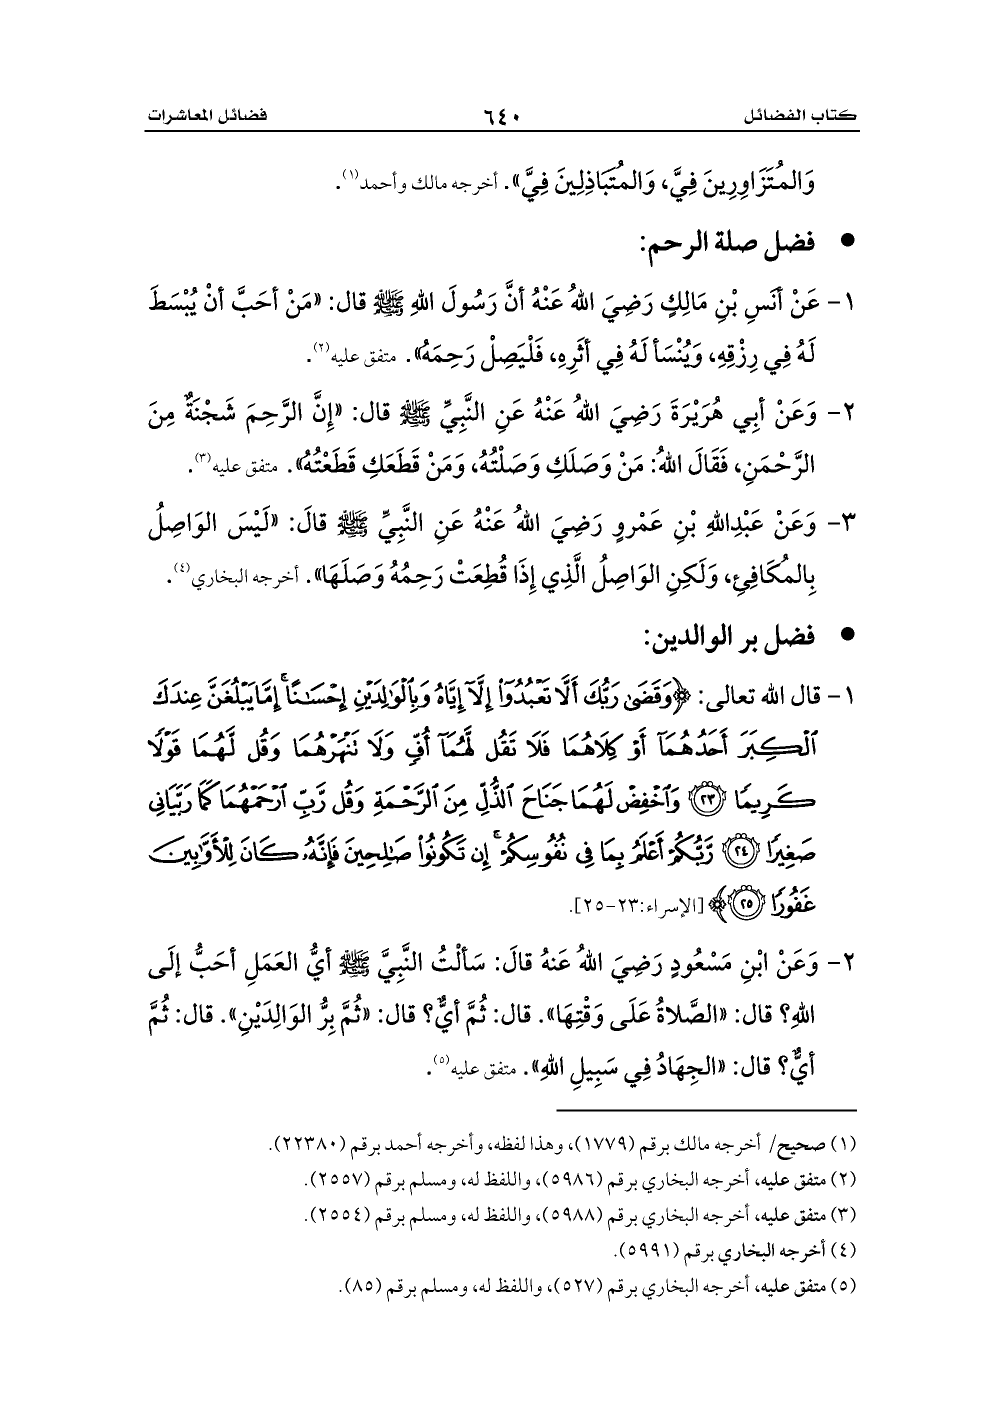 كتاب الفضائل ٦٤٠ فضائل المعاشرات
وَالمُتَزَاوِرِينَ فِيَّ، وَالمُتَبَاذِلِينَ فِيَّ». أخرجه مالك وأحمد(١).
● فضل صلة الرحم:
١- عَنْ أنَسِ بْنِ مَالِكٍ رَضِيَ اللهُ عَنْهُ أنَّ رَسُولَ اللهِ ﷺ قال: «مَنْ أحَبَّ أنْ يُبْسَطَ
لَهُ فِي رِزْقِهِ، وَيُنْسَأ لَهُ فِي أثَرِهِ، فَلْيَصِلْ رَحِمَهُ». متفق عليه(٢).
٢- وَعَنْ أبِي هُرَيْرَةَ رَضِيَ اللهُ عَنْهُ عَنِ النَّبِيِّ ﷺ قال: «إنَّ الرَّحِمَ شَجْنَةٌ مِنَ
الرَّحْمَنِ، فَقَالَ اللهُ: مَنْ وَصَلَكِ وَصَلْتُهُ، وَمَنْ قَطَعَكِ قَطَعْتُهُ». متفق عليه(٣).
٣- وَعَنْ عَبْدِاللهِ بْنِ عَمْرٍو رَضِيَ اللهُ عَنْهُ عَنِ النَّبِيِّ ﷺ قالَ: «لَيْسَ الوَاصِلُ
بِالمُكَافِئِ، وَلَكِنِ الوَاصِلُ الَّذِي إذَا قُطِعَتْ رَحِمُهُ وَصَلَهَا». أخرجه البخاري(٤).
● فضل بر الوالدين:
١- قال الله تعالى: ﴿وَقَضَىٰ رَبُّكَ أَلَّا تَعْبُدُوٓا۟ إِلَّآ إِيَّاهُ وَبِٱلْوَٰلِدَيْنِ إِحْسَٰنًا ۚ إِمَّا يَبْلُغَنَّ عِندَكَ
ٱلْكِبَرَ أَحَدُهُمَآ أَوْ كِلَاهُمَا فَلَا تَقُل لَّهُمَآ أُفٍّ وَلَا نَنْهَرْهُمَا وَقُل لَّهُمَا قَوْلًا
كَرِيمًا ٢٣ وَٱخْفِضْ لَهُمَا جَنَاحَ ٱلذُّلِّ مِنَ ٱلرَّحْمَةِ وَقُل رَّبِّ ٱرْحَمْهُمَا كَمَا رَبَّيَانِي
صَغِيرًا ٢٤ رَّبُّكُمْ أَعْلَمُ بِمَا فِي نُفُوسِكُمْ ۚ إِن تَكُونُوا۟ صَٰلِحِينَ فَإِنَّهُۥ كَانَ لِلْأَوَّٰبِينَ
غَفُورًا ٢٥﴾ [الإسراء:٢٣-٢٥].
٢- وَعَنْ ابْنِ مَسْعُودٍ رَضِيَ اللهُ عَنهُ قالَ: سَألْتُ النَّبِيَّ ﷺ أيُّ العَمَلِ أحَبُّ إلَى
اللهِ؟ قال: «الصَّلاةُ عَلَى وَقْتِهَا». قال: ثُمَّ أيٌّ؟ قال: «ثُمَّ بِرُّ الوَالِدَيْنِ». قال: ثُمَّ
أيٌّ؟ قال: «الجِهَادُ فِي سَبِيلِ اللهِ». متفق عليه(٥).
(١) صحيح/ أخرجه مالك برقم (١٧٧٩)، وهذا لفظه، وأخرجه أحمد برقم (٢٢٣٨٠).
(٢) متفق عليه، أخرجه البخاري برقم (٥٩٨٦)، واللفظ له، ومسلم برقم (٢٥٥٧).
(٣) متفق عليه، أخرجه البخاري برقم (٥٩٨٨)، واللفظ له، ومسلم برقم (٢٥٥٤).
(٤) أخرجه البخاري برقم (٥٩٩١).
(٥) متفق عليه، أخرجه البخاري برقم (٥٢٧)، واللفظ له، ومسلم برقم (٨٥).